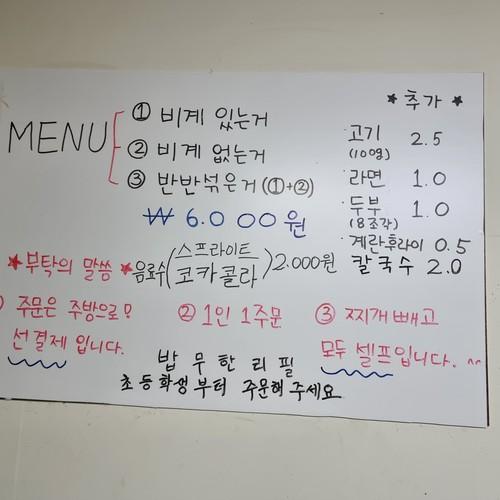 MENU
① 비계 있는거
② 비계 없는거
③ 반반섞은거 (①+②)
₩ 6.000원
★ 추가 ★
고기 2.5
(100g)
라면 1.0
두부 1.0
(8조각)
계란후라이 0.5
칼국수 2.0
★부탁의 말씀
★음료수(스프라이트
코카콜라)2.000원
주문은 주방으로?
선결제 입니다.
② 1인 1주문
③ 찌개빼고
모두 셀프입니다. ^^
밥 무한리필
초등학생부터 주문해 주세요